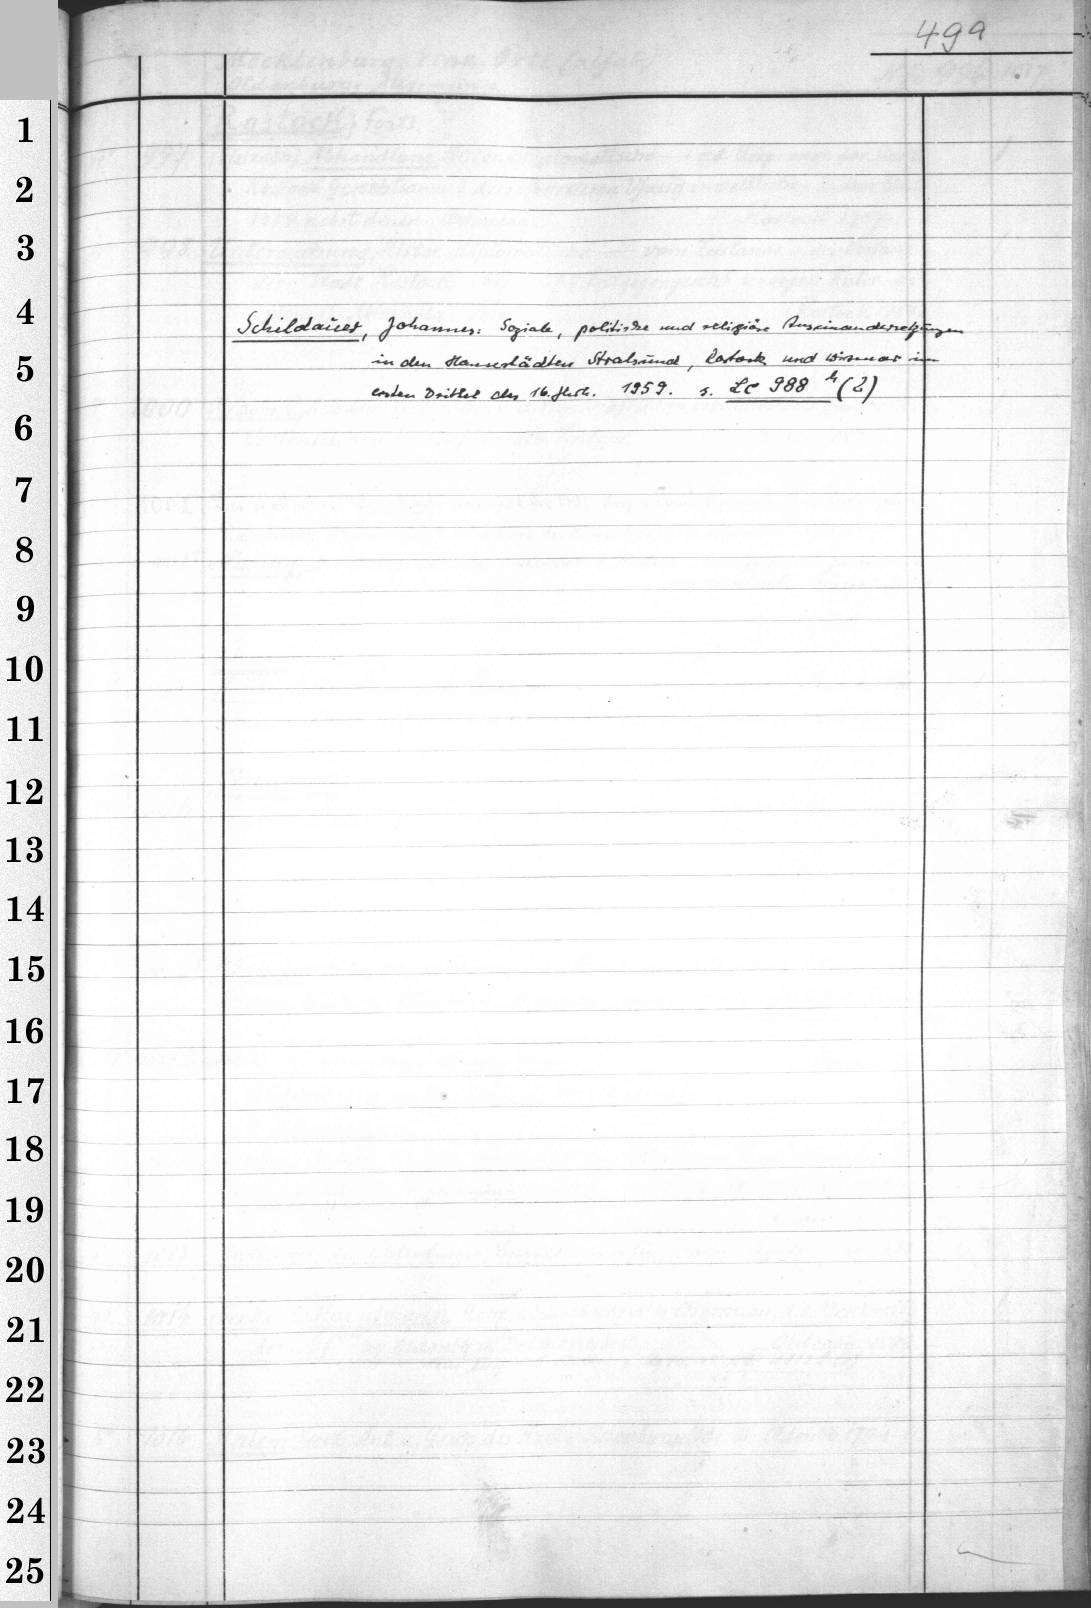 499
1
2
3
4
Schildauer, Johannes: Soziale, politische und religiöse Auseinandersetzungen
5
in den Hansestädten Stralsund, Rostock und Wismar im
ersten Drittel des 16. Jhdts. 1959. s. Lc 988 h (2)
6
7
8
9
10
11
12
13
14
15
16
17
18
19
20
21
22
23
24
25